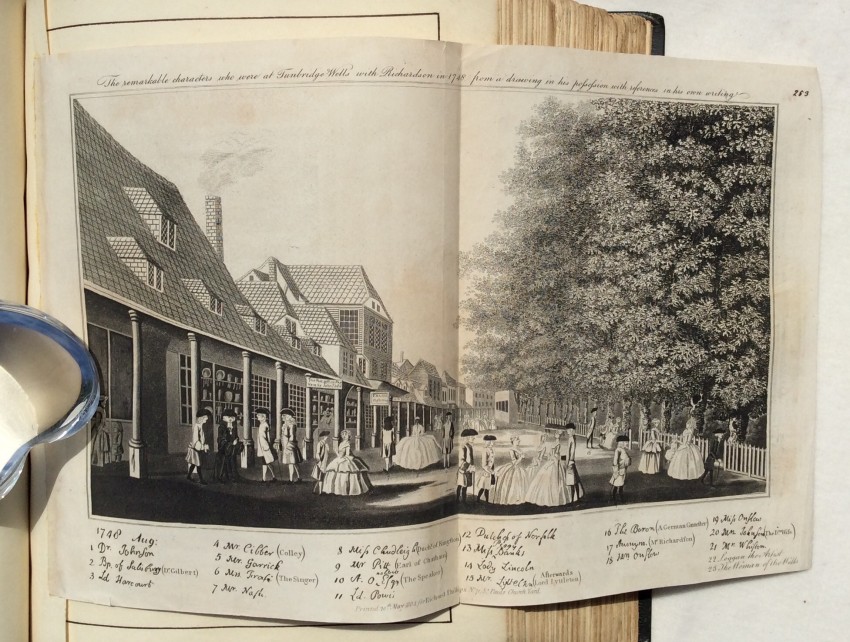 The remarkable characters who were at Tunbridge Wells with Richardson in 1748 from a drawing in his possession with references in his own writing
263
1748 Aug:
1 Dr. Johnson
2 Bp. of Salisbury (Dr Gilbert)
3 Ld Harcourt
4 Mr. Cibber (Colley)
5 Mr. Garrick
6 Mrs. Frasi (The Singer)
7 Mr. Nash
8 Miss Chudleigh (of Kingston)
9 Mr Pitt (Earl of Chatham)
10 A. Onslow Esqr (The Speaker)
11 Ld. Powis
12 Dutchess of Norfolk
13 Miss Peggy Banks
14 Lady Lincoln
15 Mr. (Afterwards Lord Lyttelton)
16 The Baron (A German Gamester)
17 Anonym. (Mr Richardson)
18 Mrs Onslow
19 Miss Onslow
20 Mrs. Johnson (the Drs. wife)
21 Mr Whiston
22 Loggan the Artist
23 The Woman of the Wells